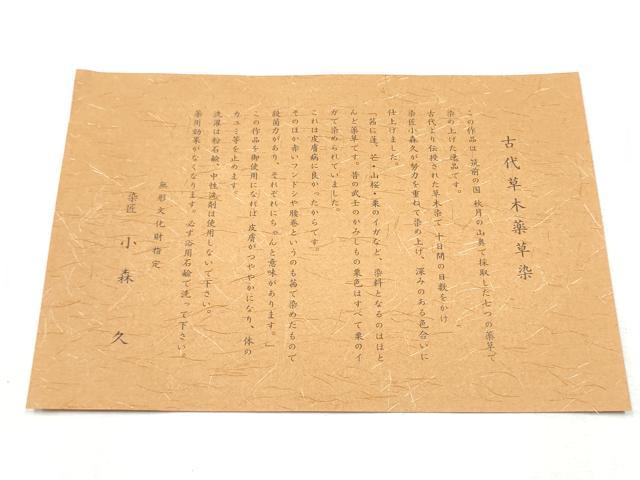 古代草木薬草染
この作品は、筑前の国 秋月の山奥で採取した七つの薬草で
染め上げた逸品です。
古代より伝授された草木染で、十日間の日数をかけ
染匠小森久が努力を重ねて染め上げ、深みのある色合いに
仕上げました。
「茜に蓬、芒・山桜・栗のイガなど、染料となるのはほと
んど薬草です。昔の武士のかみしもの栗色はすべて栗のイ
ガで染められていました。
これは皮膚病に良かったからです。
そのほか赤いフンドシや腰巻というのも茜で染めたもので
殺菌力があり、それぞれにちゃんと意味があります。」
この作品を御使用になれば、皮膚がつややかになり、体の
カユミ等を止めます。
洗濯は粉石鹸、中性洗剤は使用しないで下さい。
薬用効果がなくなります。必ず浴用石鹸で洗って下さい。
無形文化財指定
染匠 小森 久